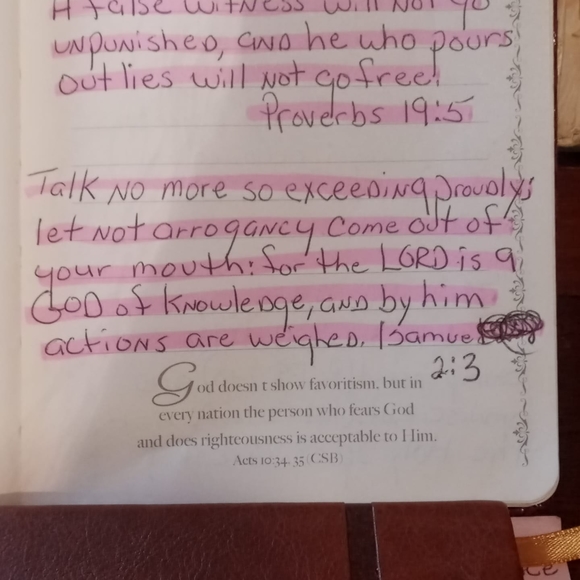 A false witness will not go
unpunished, and he who pours
out lies will not go free!
Proverbs 19:5
Talk no more so exceeding proudly;
let not arrogancy come out of
your mouth: for the LORD is a
GOD of knowledge, and by him
actions are weighed. 1 Samuel
2:3
God doesn't show favoritism, but in
every nation the person who fears God
and does righteousness is acceptable to Him.
Acts 10:34-35 (CSB)